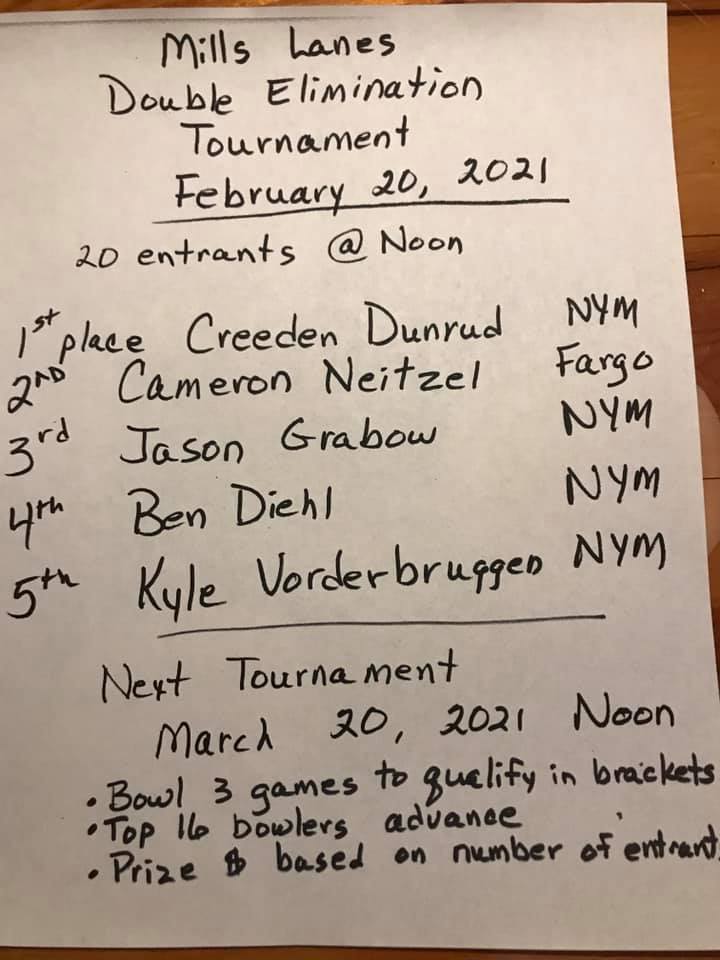 Mills Lanes
Double Elimination
Tournament
February 20, 2021
20 entrants @ Noon
1st place Creeden Dunrud NYM
2ND Cameron Neitzel Fargo
3rd Jason Grabow NYM
4th Ben Diehl NYM
5th Kyle Vorderbruggen NYM
Next Tournament
March 20, 2021 Noon
• Bowl 3 games to qualify in brackets
• Top 16 bowlers advance
• Prize $ based on number of entrant